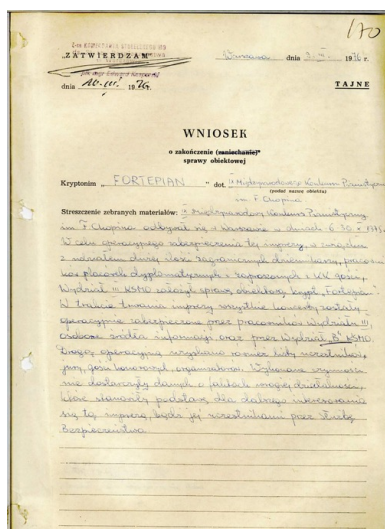 170
„ZATWIERDZAM"
Warszawa dnia 9.III. 1976 r.
dnia 10.III. 1976.
TAJNE
WNIOSEK
o zakończenie (zaniechanie)*
sprawy obiektowej
Kryptonim „ FORTEPIAN " dot. IX Międzynarodowy Konkurs Pianistyczny
(podać nazwę obiektu)
im. F. Chopina
Streszczenie zebranych materiałów: IX Międzynarodowy Konkurs Pianistyczny
im. F. Chopina odbywał się w Warszawie w dniach 6-30.X.1975.
W celu operacyjnego zabezpieczenia tej imprezy, w związku
z udziałem dużej ilości zagranicznych dziennikarzy, pracowni-
ków placówek dyplomatycznych i zaproszonych z KK gości,
Wydział III KSMO założył sprawę obiektową krypt. „Fortepian".
W trakcie trwania imprezy wszystkie koncerty zostały
operacyjnie zabezpieczone przez pracowników Wydziału III,
osobowe źródła informacji oraz przez Wydział „B" KSMO.
Drogą operacyjną uzyskano również listy uczestników,
jury, gości honorowych, organizatorów. Wykonane czynności
nie dostarczyły danych o faktach wrogiej działalności,
które stanowiły podstawę dla dalszego interesowania
się tą imprezą, bądź jej uczestnikami przez Służbę
Bezpieczeństwa.